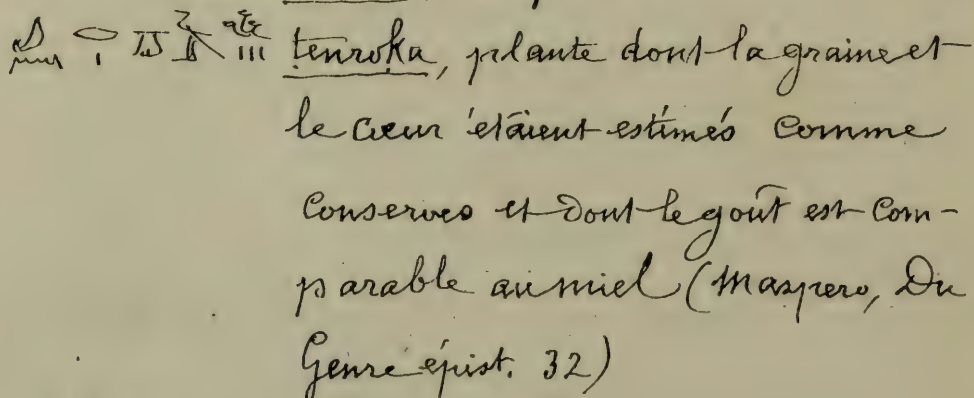 tenroka, plante dont la graine et
le cœur étaient estimés comme
conserves et dont le goût est com-
parable au miel (Maspero, Du
Genre épist. 32)